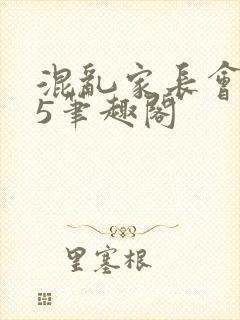 混亂家長會
5筆趣閣
里塞根